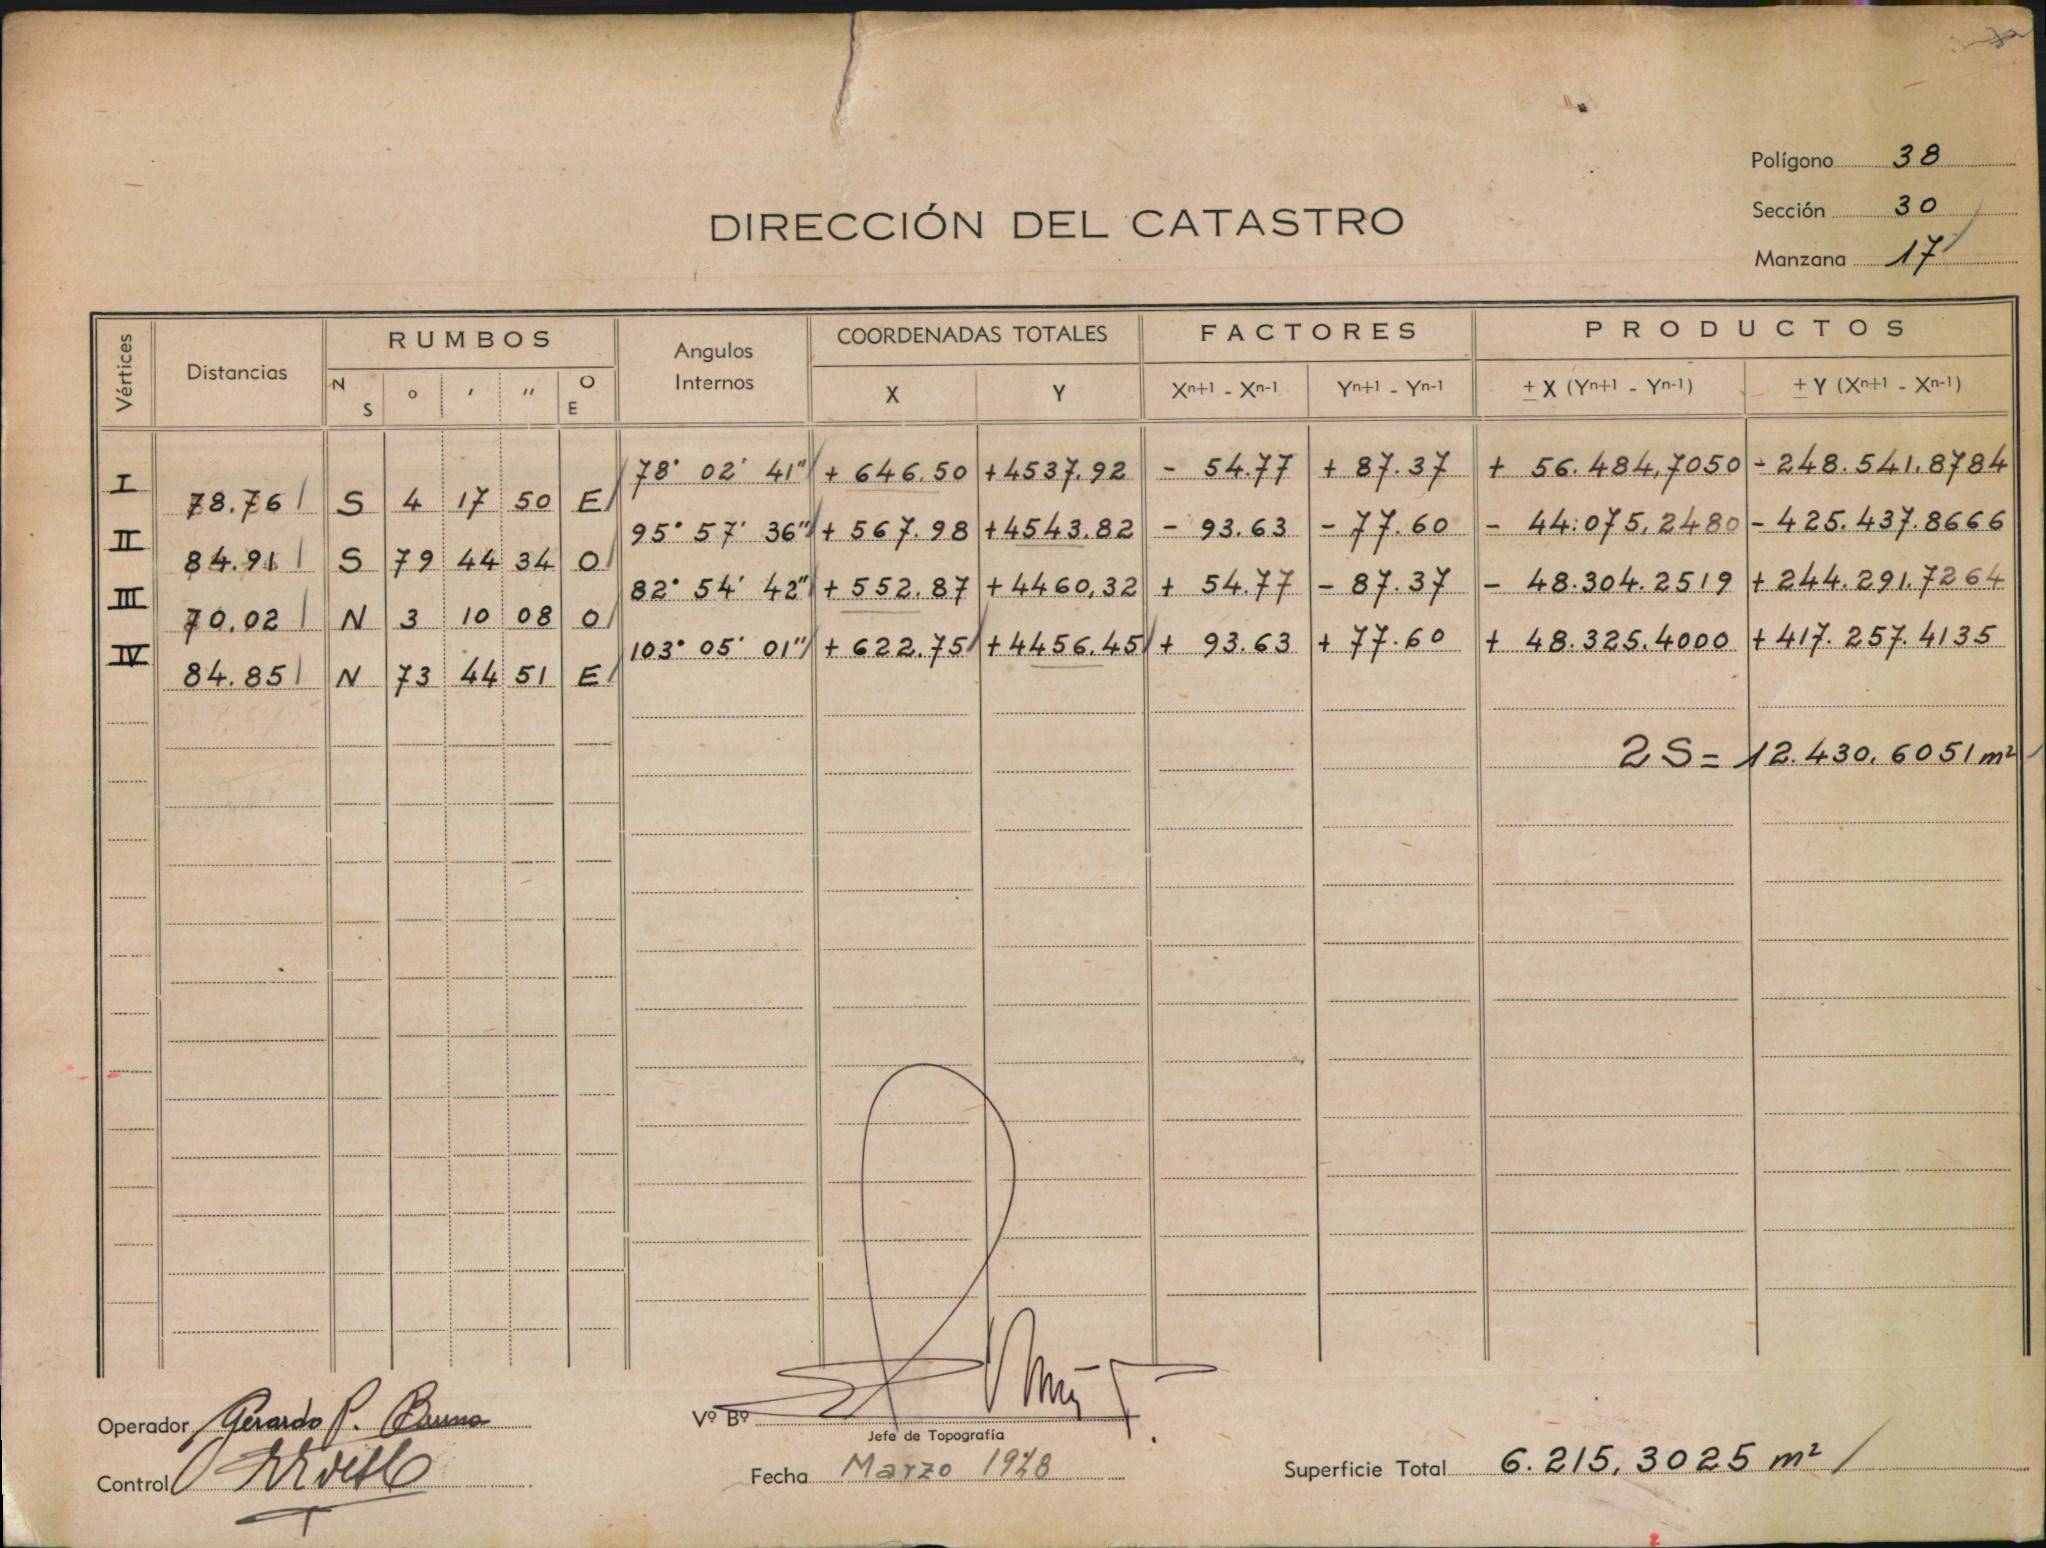 Polígono 38
Sección 30
Manzana 17
DIRECCIÓN DEL CATASTRO
Vértices Distancias RUMBOS Angulos Internos COORDENADAS TOTALES FACTORES PRODUCTOS
N S ° ′ ″ O E X Y Xn+1 - Xn-1 Yn+1 - Yn-1 ± X (Yn+1 - Yn-1) ± Y (Xn+1 - Xn-1)
I 78° 02' 41" + 646.50 +4537.92 - 54.77 + 87.37 + 56.484,7050 - 248.541.8784
78.76 S 4 17 50 E
II 95° 57' 36" + 567.98 +4543.82 - 93.63 - 77.60 - 44.075,2480 - 425.437.8666
84.91 S 79 44 34 O
III 82° 54' 42" + 552.87 +4460,32 + 54.77 - 87.37 - 48.304.2519 + 244.291.7264
70.02 N 3 10 08 O
IV 103° 05' 01" + 622.75 +4456.45 + 93.63 + 77.60 + 48.325.4000 + 417.257.4135
84.85 N 73 44 51 E
2S = 12.430,6051 m²
Operador Gerardo P. Bruno
Vº Bº
Jefe de Topografía
Control
Fecha Marzo 1948
Superficie Total 6.215,3025 m²